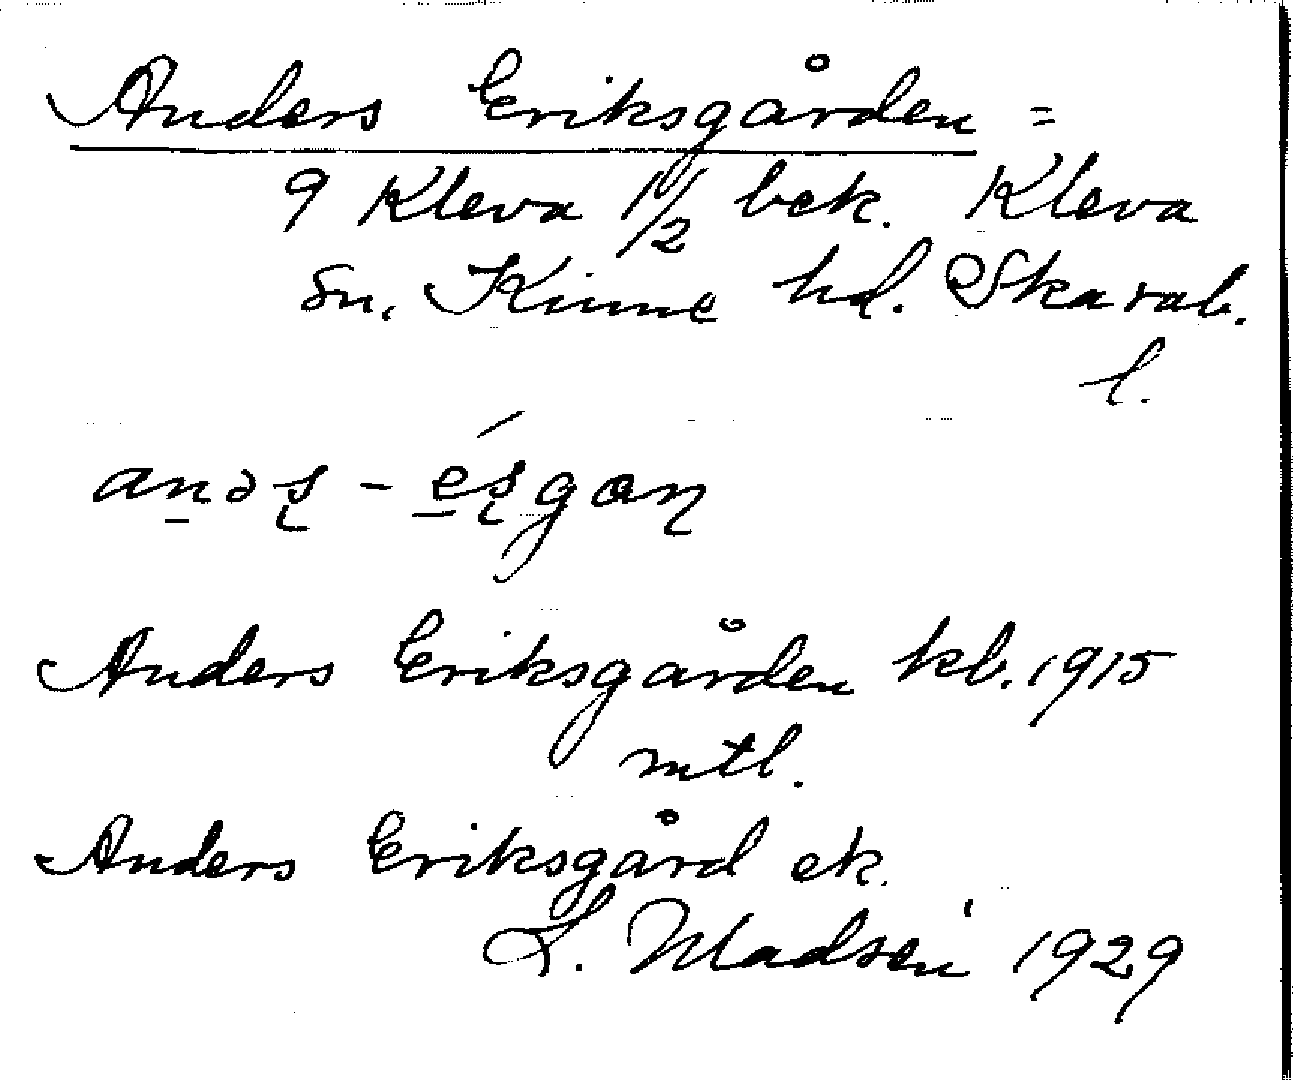 Anders Eriksgården =
9 Kleva 1/2 bek. Kleva
sn. Kinne hd. Skarab.
l.
anəʂ - éʂgɑɳ
Anders Eriksgården kb. 1915
mtl.
Anders Eriksgård ek.
L. Madsén 1929